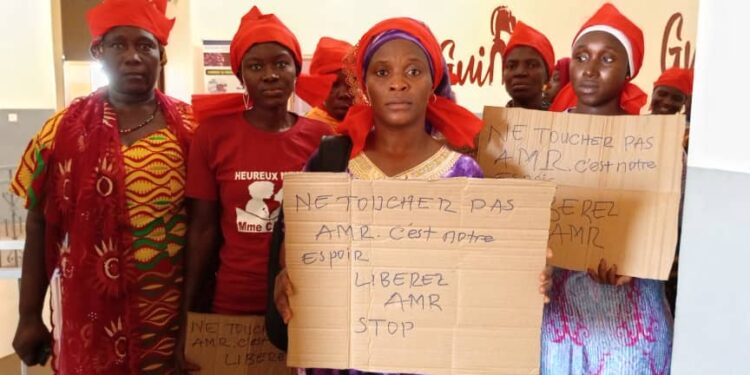 Gui
G
HEUREUX M
Mme C
NE TOUCHER PAS
AMR. c'est notre
ESPOIR
LIBEREZ
AMR
STOP
NE TOUCHER PAS
AMR c'est notre
BEREZ
AMR
NE TOUCHER PAS
AMR. C'E
LIBERE